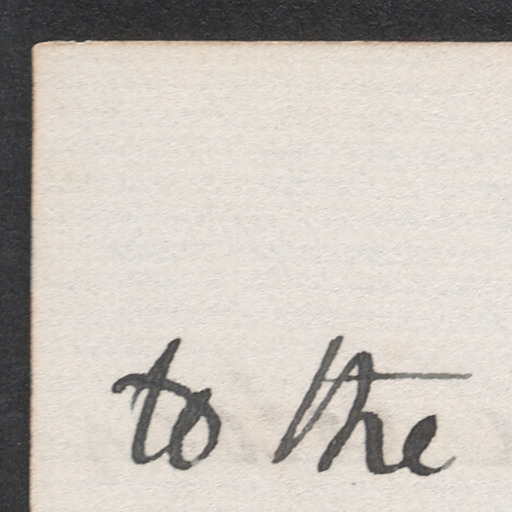 to the